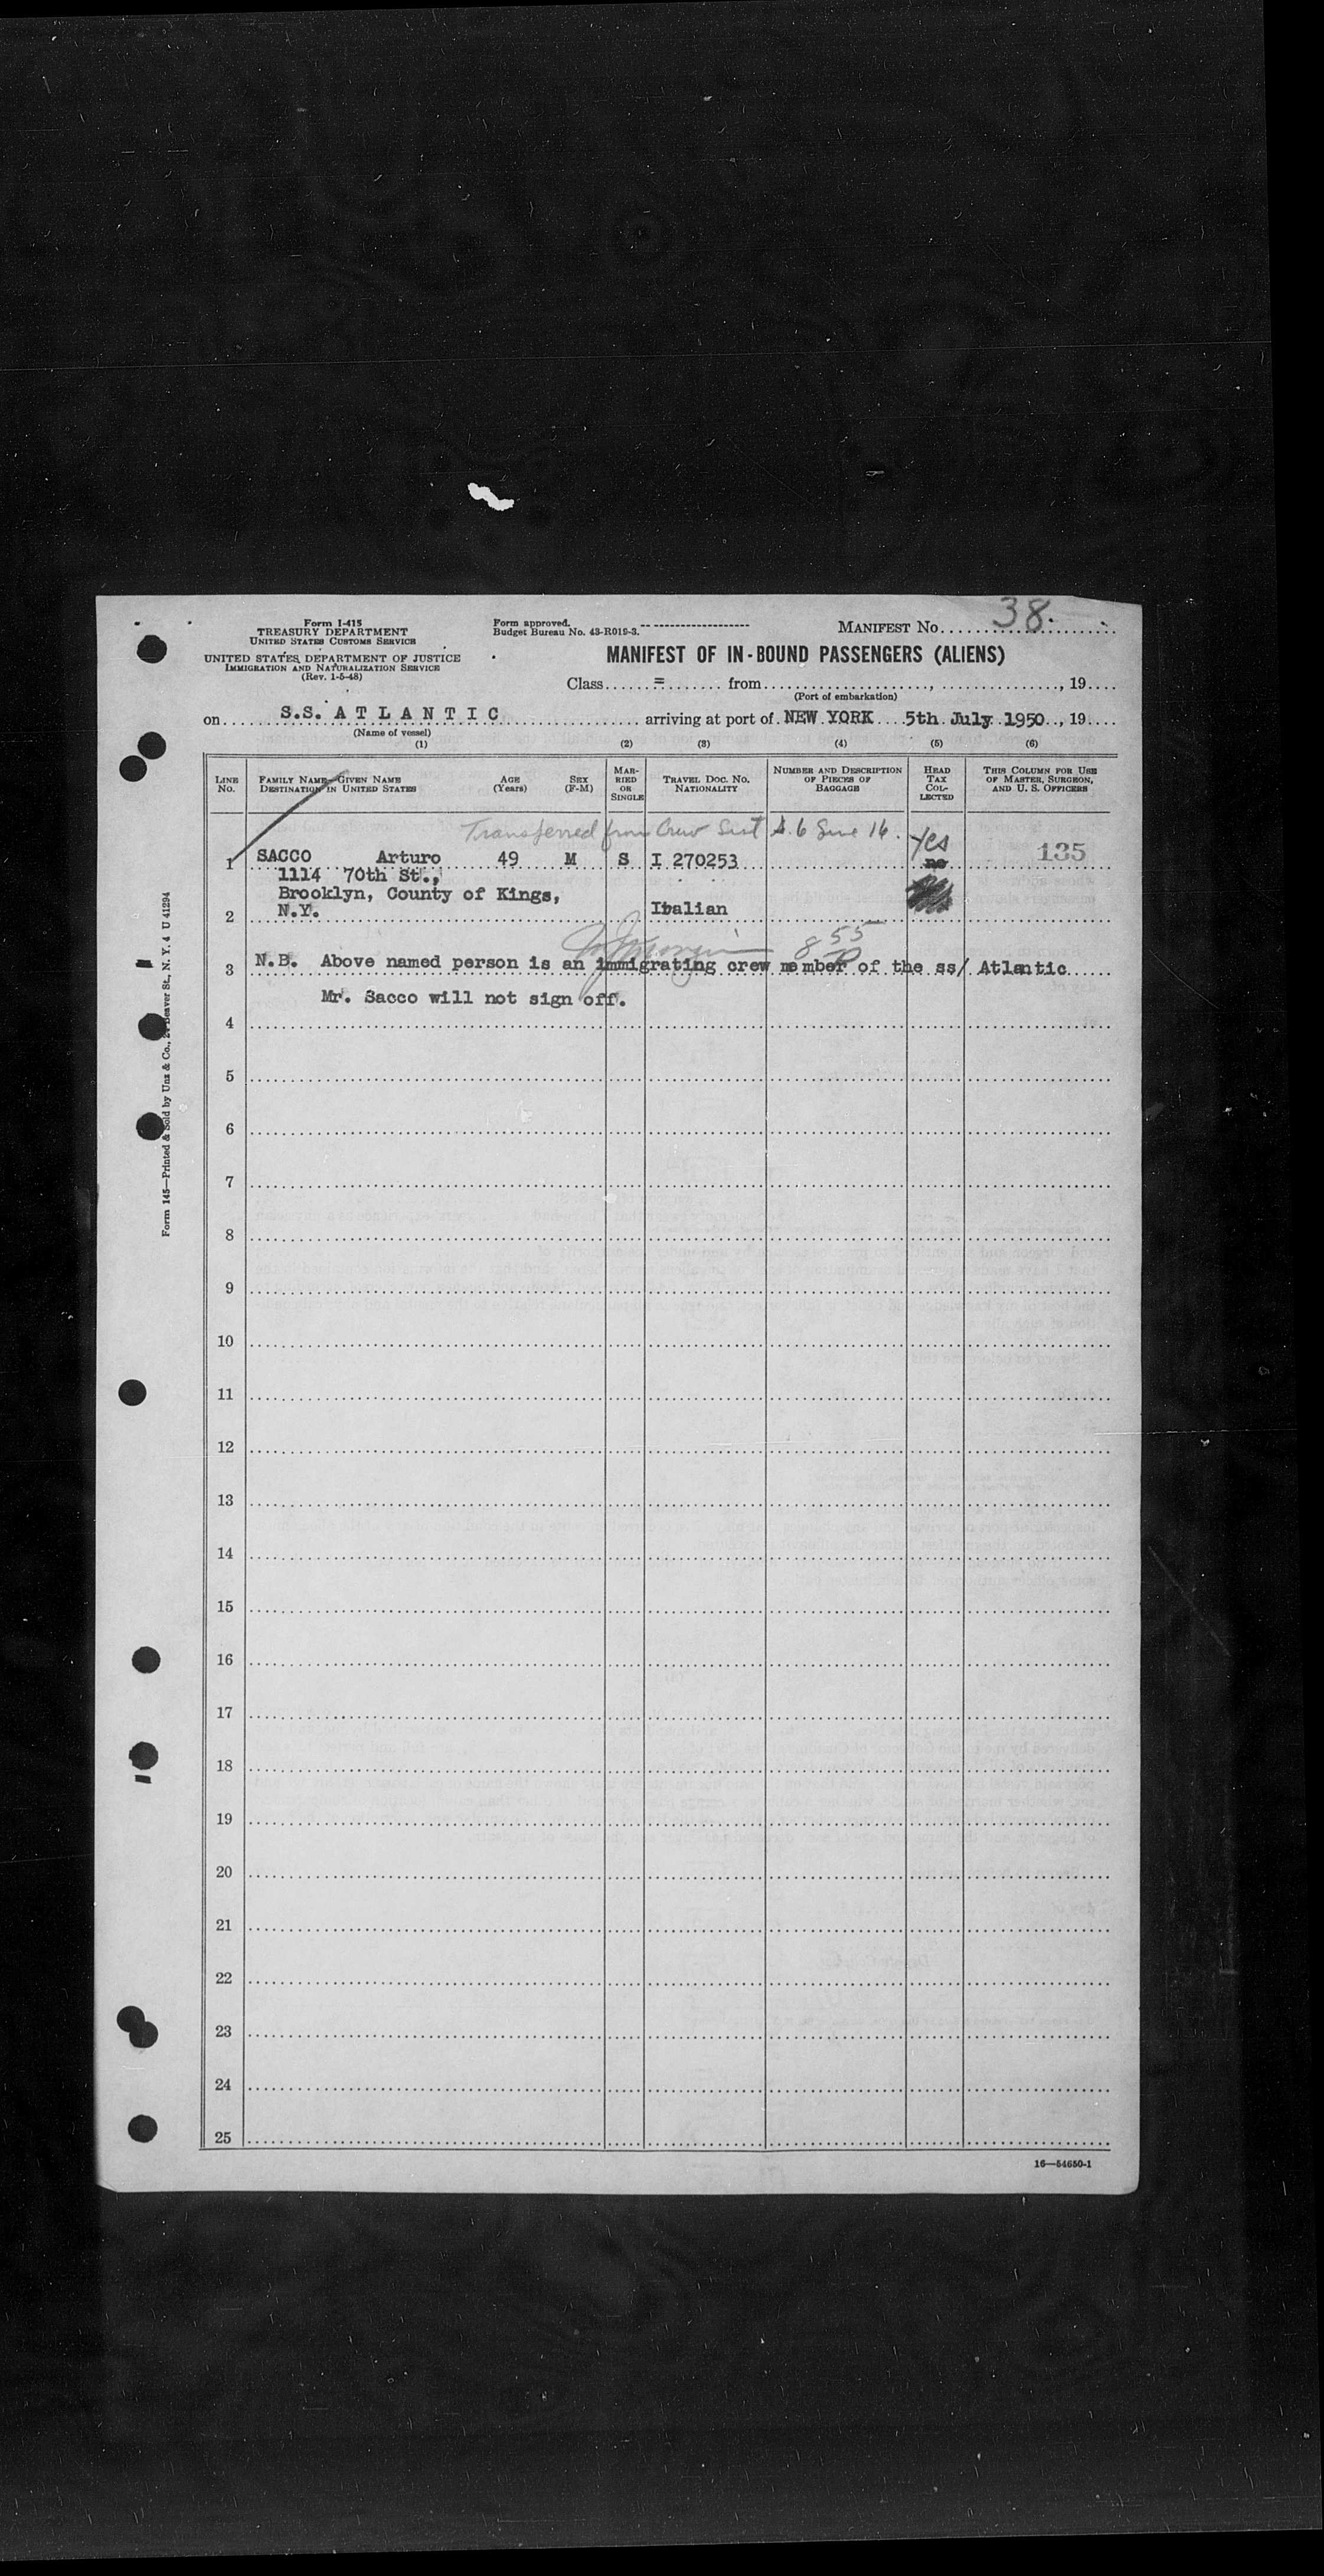 Form I-415
TREASURY DEPARTMENT
UNITED STATES CUSTOMS SERVICE
UNITED STATES DEPARTMENT OF JUSTICE
IMMIGRATION AND NATURALIZATION SERVICE
(Rev. 1-5-48)
Form approved.
Budget Bureau No. 43-R019-3.
MANIFEST No. 38.
MANIFEST OF IN-BOUND PASSENGERS (ALIENS)
Class = from , , 19
(Port of embarkation)
on S.S. A T L A N T I C arriving at port of NEW YORK 5th July 1950 , 19
(Name of vessel)
(1) (2) (3) (4) (5) (6)
LINE No. FAMILY NAME—GIVEN NAME DESTINATION IN UNITED STATES AGE (Years) SEX (F-M) MARRIED OR SINGLE TRAVEL DOC. No. NATIONALITY NUMBER AND DESCRIPTION OF PIECES OF BAGGAGE HEAD TAX COLLECTED THIS COLUMN FOR USE OF MASTER, SURGEON, AND U. S. OFFICERS
Transferred from Crew List S. 6 Line 16. Yes
1 SACCO Arturo 49 M S I 270253 no 135
1114 70th St.,
Brooklyn, County of Kings,
2 N.Y. Italian
8 55
3 N.B. Above named person is an immigrating crew member of the ss/ Atlantic
Mr. Sacco will not sign off.
4
5
6
7
8
9
10
11
12
13
14
15
16
17
18
19
20
21
22
23
24
25
16—54650-1
Form 145—Printed & Sold by Unz & Co., 24 Beaver St., N. Y. 4 U 41294